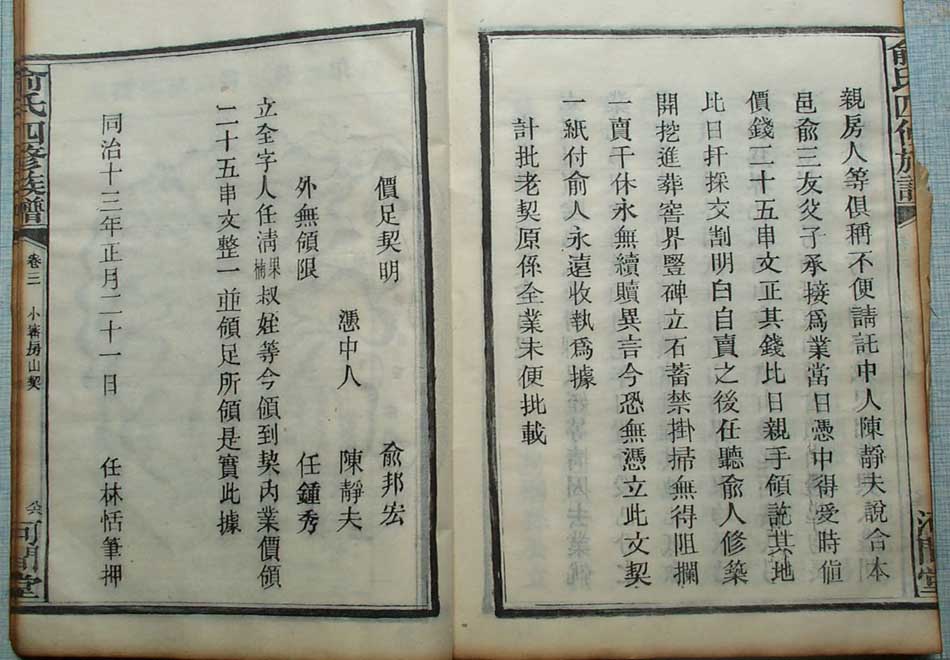 親房人等俱稱不便請託中人陳靜夫說合本
邑俞三友父子承接爲業當日憑中得愛時值
價錢二十五串文正其錢比日親手領訖其地
比日扦採交割明白自賣之後任聽俞人修築
開挖進葬窖界豎碑立石蓄禁掛掃無得阻攔
一賣千休永無續贖異言今恐無憑立此文契
一紙付俞人永遠收執爲據
計批老契原係全業未便批載
價足契明
俞邦宏
憑中人 陳靜夫
外無領限 任鍾秀
立全字人任清果楠叔姪等今領到契內業價領
二十五串文整一並領足所領是實此據
同治十三年正月二十一日 任林恬筆押
俞氏四修族譜
卷三
小
房山契
河間堂